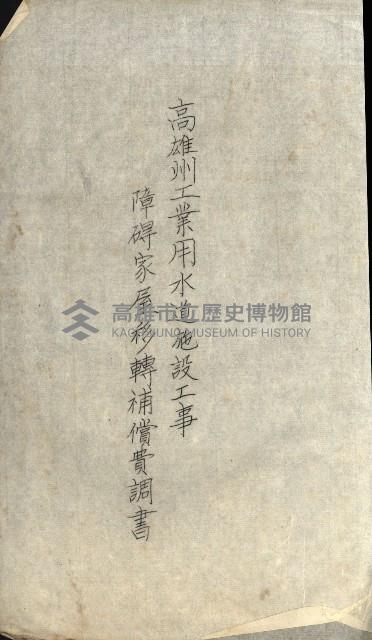 高雄州工業用水道施設工事
障碍家屋移轉補償費調書
高雄市立歷史博物館
KAOHSIUNG MUSEUM OF HISTORY